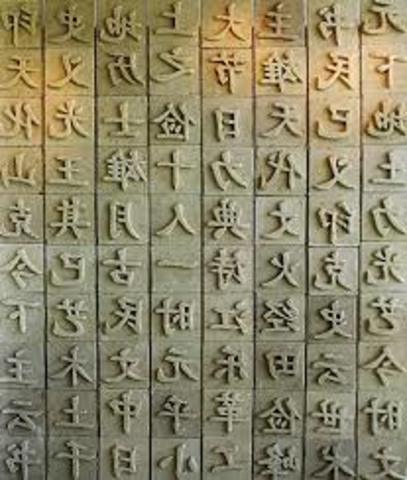 印 史 地 上 大 主 书 元
天 义 历 之 节 雄 民 下
化 光 士 俭 日 天 已 地
山 王 雄 十 力 代 义 土
克 其 月 人 典 文 印 力
今 巳 古 一 诗 火 克 光
下 艺 民 时 江 经 史 艺
主 木 文 元 乐 田 云 今
云 土 中 平 革 俭 世 时
书 千 日 小 工 峰 术 文